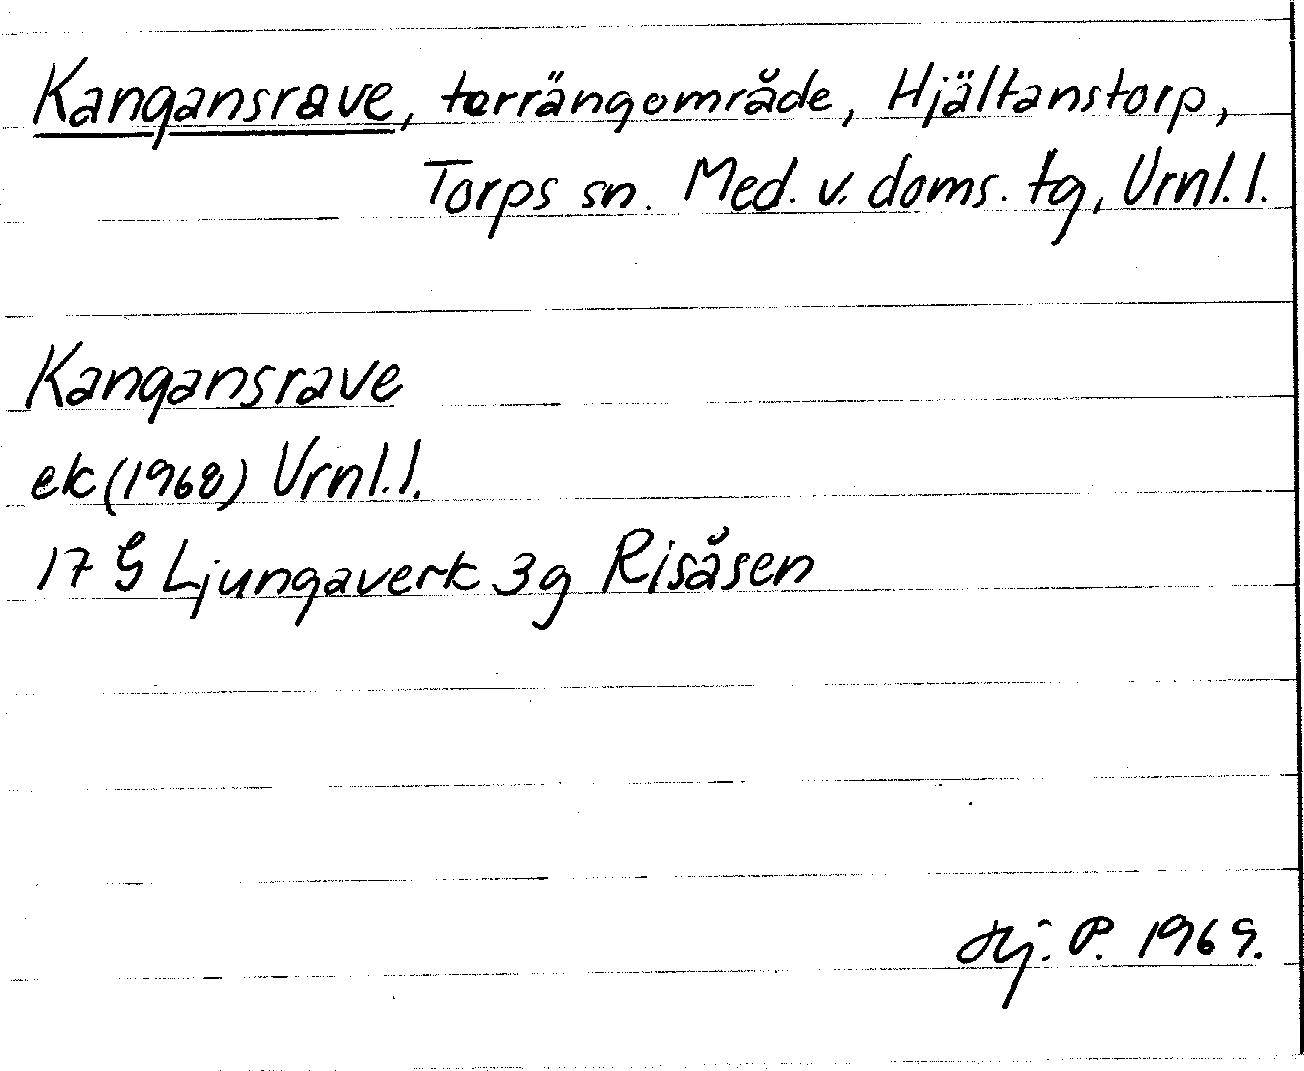 Kangansrave, terrängområde, Hjältanstorp,
Torps sn. Med. v. doms. tg, Vrnl. l.
Kangansrave
ek (1968) Vrnl. l.
17 G Ljungaverk 3g Risåsen
Hj. P. 1969.